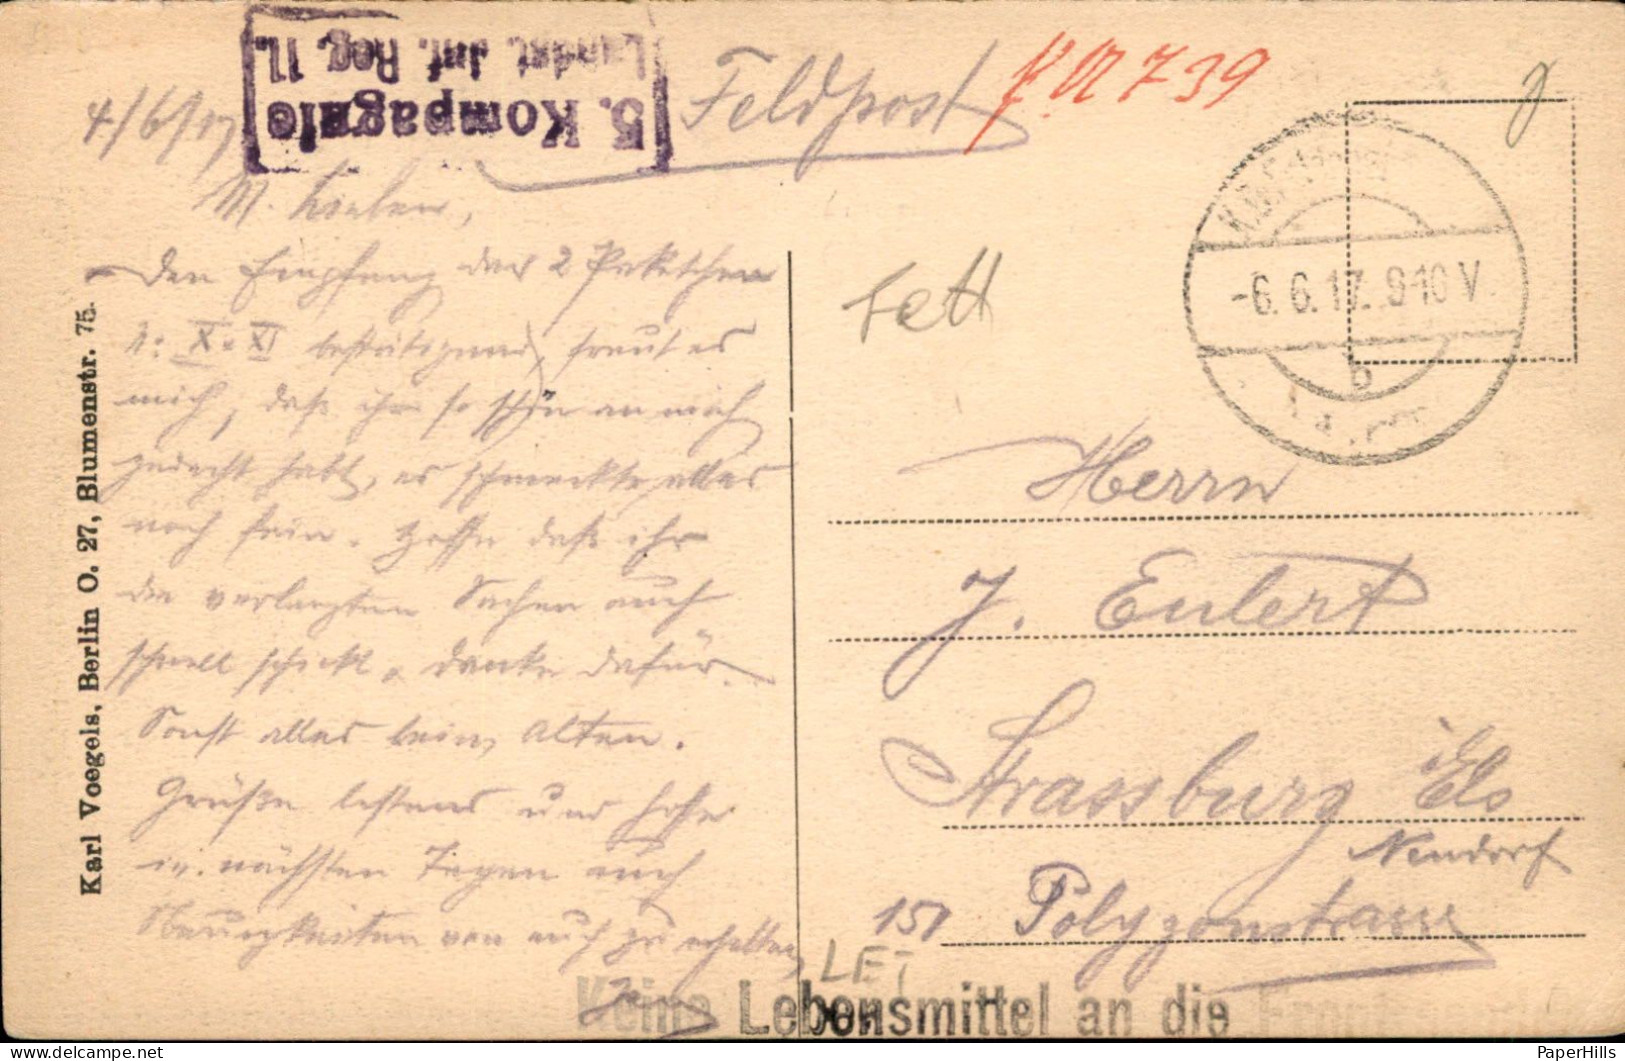 5. Kompagnie
Landst. Inf. Reg. 11.
Feldpost
739
4/6/17
M. Lieben,
Den Empfang der 2 Paketchen
N: X u. XI bestätigend, freut es
mich, daß ihr so schön an mich
gedacht habt, es schmeckte alles
noch fein. Hoffe daß ihr
die verlangten Sachen auch
schnell schickt. Danke dafür.
Sonst alles beim Alten.
Grüße bestens und hoffe
in. nächsten Tagen auch
Neuigkeiten von euch zu erhalten
-6.6.17. 9-10 V
b
Herrn
J. Eulert
Strassburg i Els
Neudorf
151 Polygonstrasse
LET
Keine Lebensmittel an die Front
Karl Voegels, Berlin O. 27, Blumenstr. 75.
PaperHills